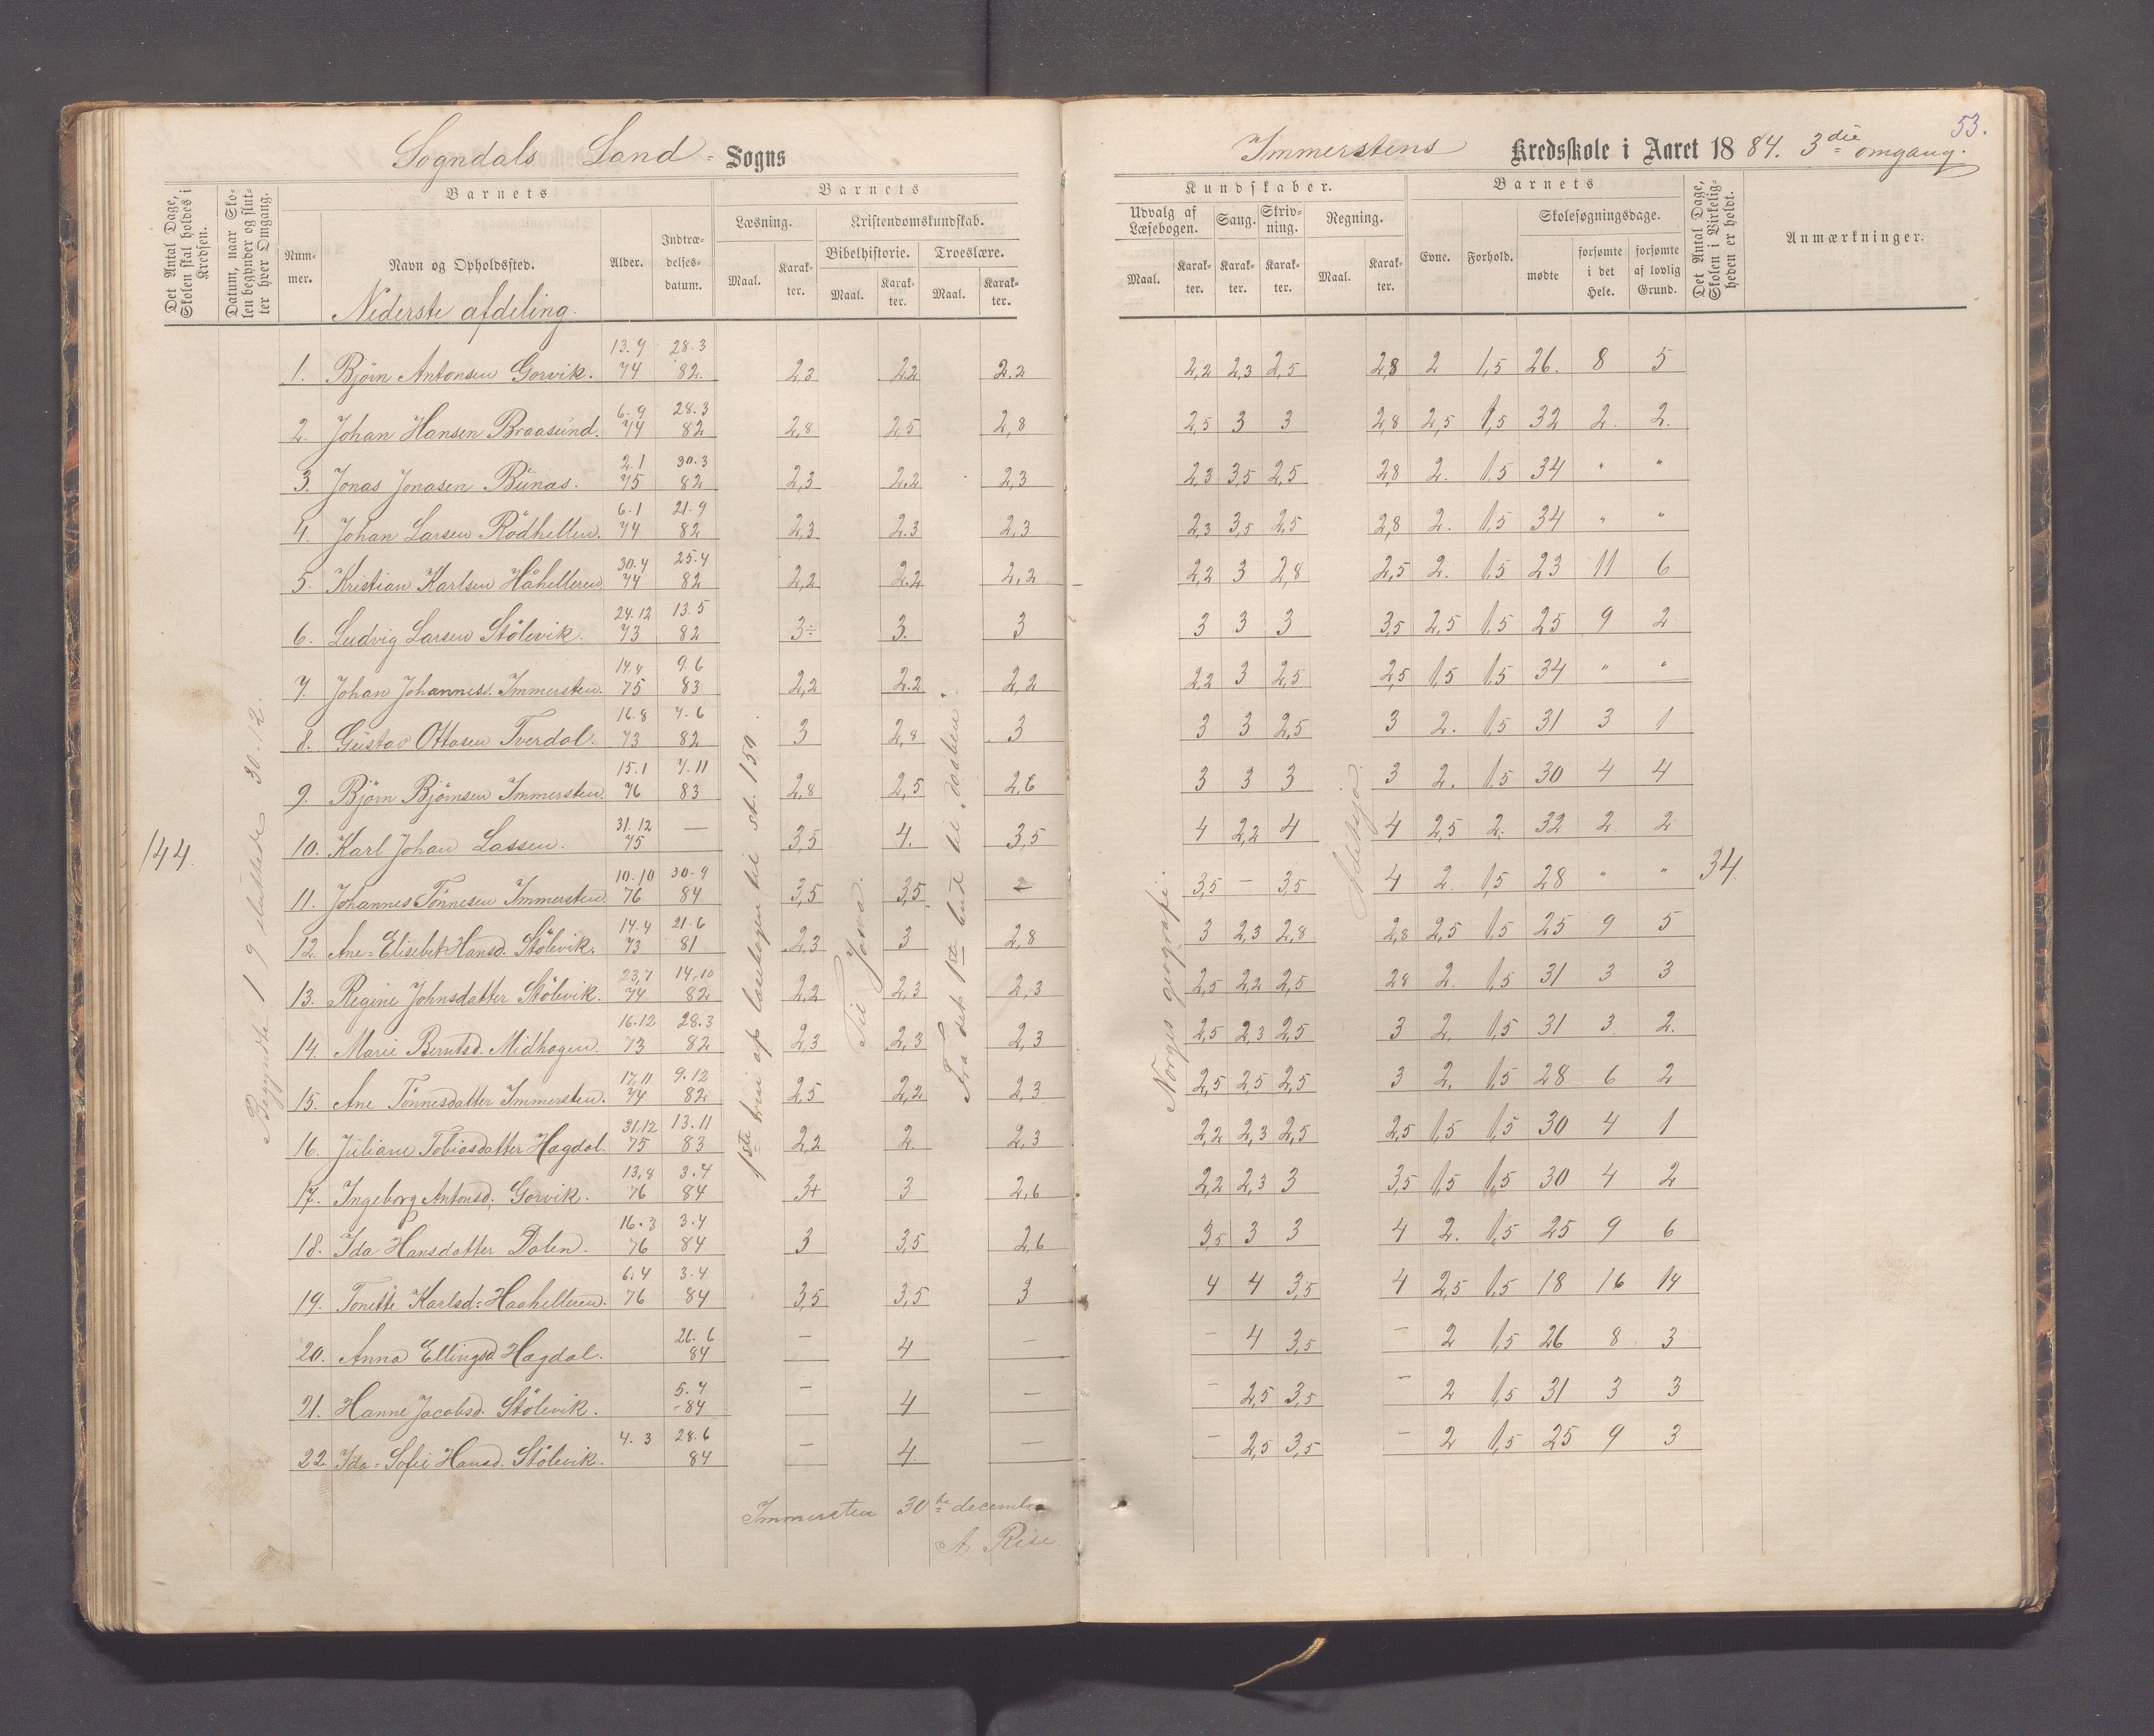 Sogndals Land- Sogns
Det Antal Dage, Skolen skal holdes i Kredsen.
Datum, naar Skolen begynder og slutter hver Omgang.
Barnets
Nummer.
Navn og Opholdssted.
Alder.
Indtrædelsesdatum.
Barnets
Læsning.
Kristendomskundskab.
Bibelhistorie. Troeslære.
Maal. Karakter. Maal. Karakter. Maal. Karakter.
Nederste afdeling.
144.
Begyndte 19 sluttede 30-12.
1ste trin af læsebogen til st. 150.
Til Jona.
Fra det 1ste bud til
1. Björn Antonsen Gorvik. 13.9 74 28.3 82. 2,3 2,2 2.2
2. Johan Hansen Braasund. 6.9 74 28.3 82 2,8 2,5 2,8
3. Jonas Jonasen Bunas. 2.1 75 30.3 82 2,3 2,2 2,3
4. Johan Larsen Rödhelleren. 6.1 74 21.9 82 2,3 2.3 2,3
5. Kristian Karlsen Håhelleren 30.4 74 25.4 82 2,2 2.2 2,2
6. Ludvig Larsen Stölevik. 24.12 73 13.5 82 3÷ 3. 3
7. Johan Johanness. Immersten. 14.4 75 9.6 83 2,2 2.2 2,2
8. Gustav Ottosen Tverdal. 16.8 73 7.6 82 3 2,8 3
9. Björn Björnsen Immersten. 15.1 76 7.11 83 2,8 2,5 2,6
10. Karl Johan Lassen. 31.12 75 — 3,5 4. 3,5
11. Johannes Tönnesen Immersten. 10.10 76 30.9 84 3,5 3,5 —
12. Ane-Elisebet Hansd. Stölevik. 14.4 73 21.6 81 2,3 3 2,8
13. Regine Johnsdatter Stölevik. 23.7 74 14.10 82 2,2 2,3 2,3
14. Marie Berntsd. Midhagen. 16.12 73 28.3 82 2,3 2,3 2,3
15. Ane Tönnesdatter Immersten. 17.11 74 9.12 82 2,5 2,2 2,3
16. Juliane Tobiasdatter Hagdal. 31.12 75 13.11 83 2,2 2. 2,3
17. Ingeborg Antonsd. Gorvik. 13.8 76 3.4 84 3+ 3 2,6
18. Ida Hansdatter Dalen. 16.3 76 3.4 84 3 3,5 2,6
19. Tonette Karlsd: Haahelleren. 6.4 76 3.4 84 3,5 3,5 3
20. Anna Ellingsd. Hagdal. 26.6 84 — 4 —
21. Hanne Jacobsd. Stölevik. 5.4 -84 — 4 —
22. Ida-Sofie Hansd. Stölevik. 4.3 28.6 84 — 4. —
Immersten 30te december
A Rise.
53.
Immerstens Kredsskole i Aaret 1884. 3die omgang.
Kundskaber.
Udvalg af Læsebogen.
Sang. Skrivning. Regning.
Maal. Karakter. Karakter. Karakter. Maal. Karakter.
Barnets
Evne. Forhold.
Skolesøgningsdage.
mødte forsømte i det Hele. forsømte af lovlig Grund.
Det Antal Dage, Skolen i Virkeligheden er holdt.
Anmærkninger.
Norges geografi.
34.
2,2 2,3 2,5 2,8 2 1,5 26. 8 5
2,5 3 3 2,8 2,5 1,5 32 2. 2.
2,3 3,5 2,5 2,8 2. 1,5 34 " "
2,3 3,5 2,5 2,8 2. 1,5 34 " "
2,2 3 2,8 2,5 2. 1,5 23 11 6
3 3 3 3,5 2,5 1,5 25 9 2
2,2 3 2,5 2,5 1,5 1,5 34 " "
3 3 2,5 3 2. 1,5 31 3 1
3 3 3 3 2. 1,5 30 4 4
4 2,2 4 4 2,5 2. 32 2 2
3,5 — 3,5 4 2. 1,5 28 " "
3 2,3 2,8 2,8 2,5 1,5 25 9 5
2,5 2,2 2,5 2,8 2. 1,5 31 3 3
2,5 2,3 2,5 3 2. 1,5 31 3. 2.
2,5 2,5 2,5 3 2. 1,5 28 6 2
2,2 2,3 2,5 2,5 1,5 1,5 30 4 1
2,2 2,3 3 3,5 1,5 1,5 30 4 2
3,5 3 3 4 2. 1,5 25 9 6
4 4 3,5 4 2,5 1,5 18 16 14
— 4 3,5 — 2 1,5 26 8 3
— 2,5 3,5 — 2 1,5 31 3 3
— 2,5 3,5 — 2 1,5 25 9 3